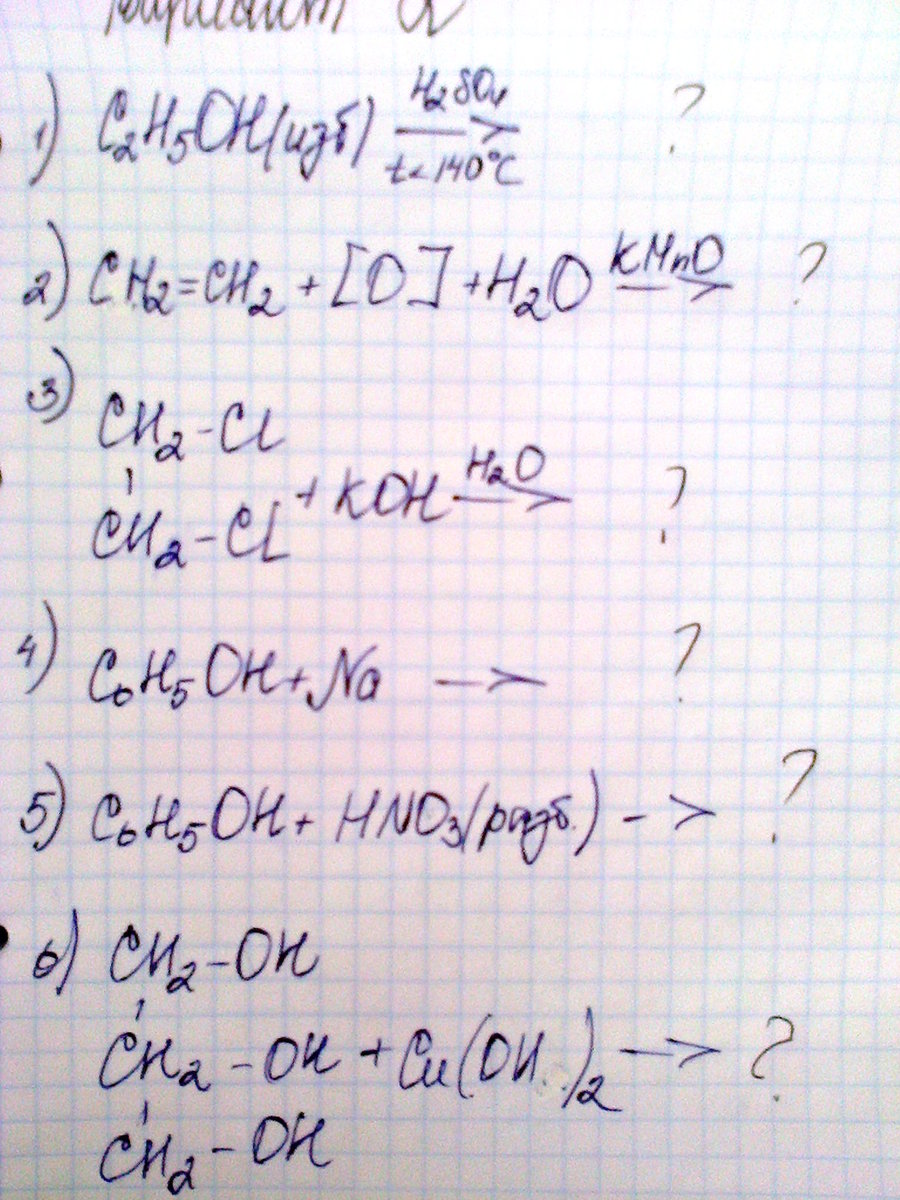 Вариант 2
1) C₂H₅OH(изб) H₂SO₄ → t<140°C ?
2) CH₂=CH₂ + [O] + H₂O KMnO → ?
3) CH₂-Cl
CH₂-Cl + KOH H₂O → ?
4) C₆H₅OH + Na → ?
5) C₆H₅OH + HNO₃(разб.) -> ?
6) CH₂-OH
CH₂-OH + Cu(OH)₂ -> ?
CH₂-OH